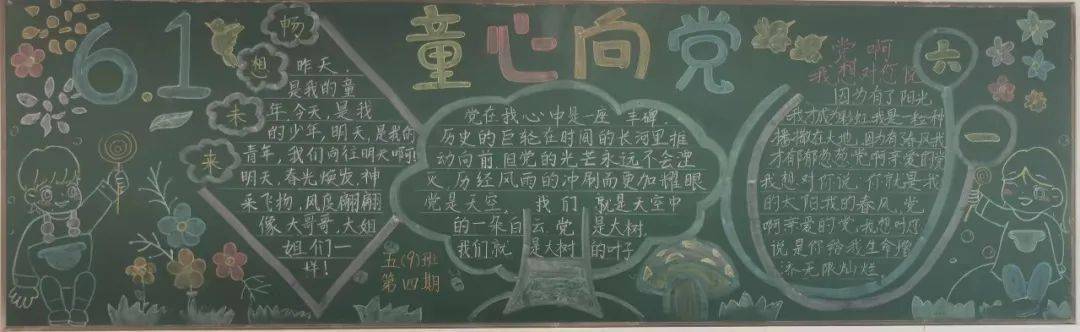 6.1
童心向党
畅
想
来
来
昨天,
是我的童
年,今天,是我
的少年,明天,是我的
青年,我们向往明天啊!
明天,春光焕发,神
采飞扬,风度翩翩
像大哥哥,大姐
姐们一
样!
五(9)班
第四期
党在我心中是一座丰碑,
历史的巨轮在时间的长河里推
动向前,但党的光芒永远不会湮
灭,历经风雨的冲刷而更加耀眼
党是天空,我们就是天空中
的一朵白云,党是大树,
我们就是大树的叶子
六
一
党啊
我想对你说
因为有了阳光
我才成为彩虹,我是一粒种
播撒在大地,因为有春风我
才郁郁葱葱,党啊亲爱的党
我想对你说,你就是我
的太阳我的春风,党
啊亲爱的党,我想对你
说是你给我生命增
添无限灿烂